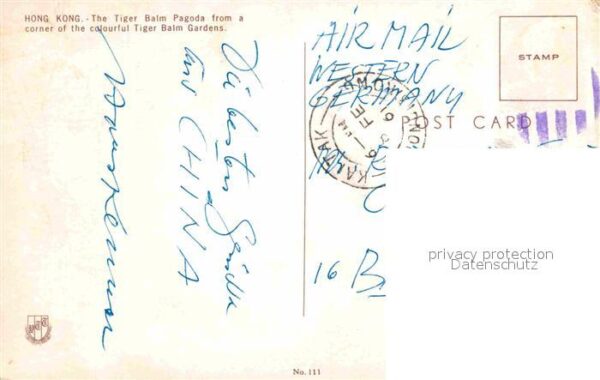 HONG KONG.-The Tiger Balm Pagoda from a
corner of the colourful Tiger Balm Gardens.
Die besten Grüße
aus CHINA
AIR MAIL
WESTERN
GERMANY
STAMP
POST CARD
16 B
privacy protection
Datenschutz
No. 111